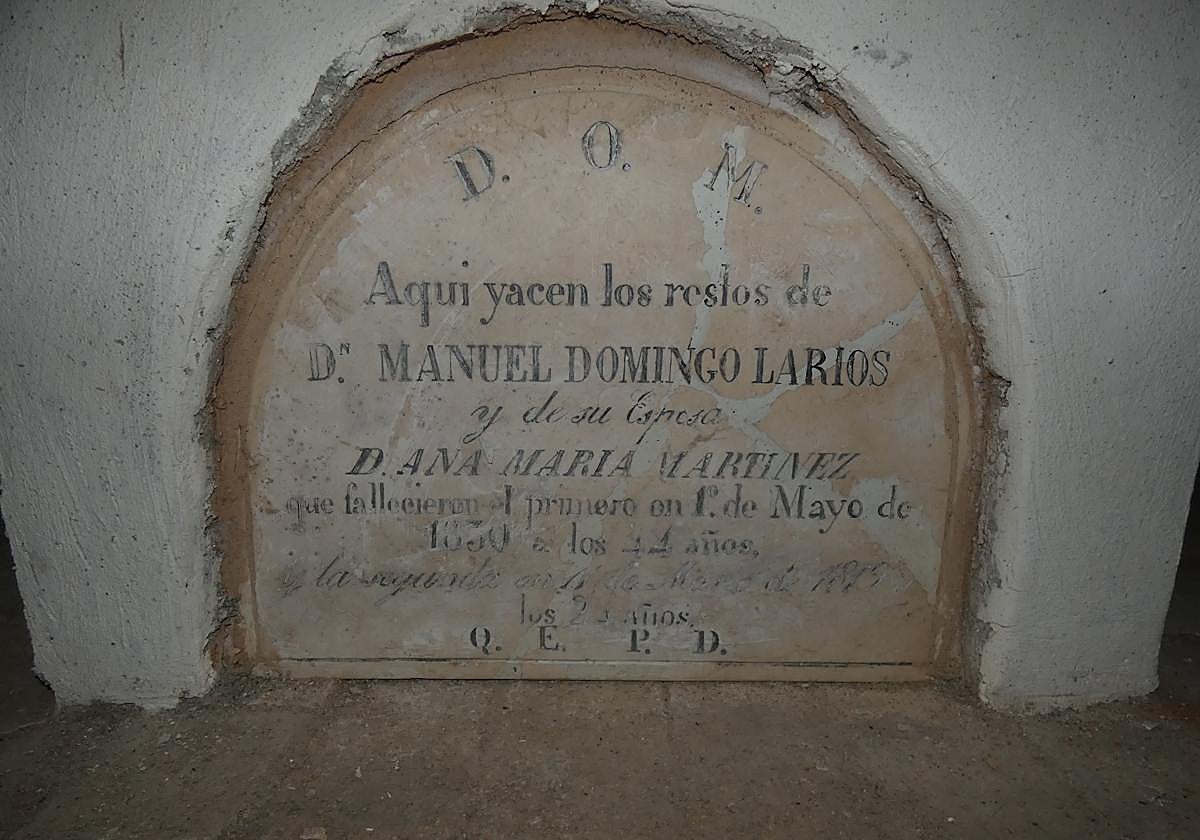 D. O. M.
Aqui yacen los restos de
D.N MANUEL DOMINGO LARIOS
y de su Esposa
D. ANA MARIA MARTINEZ
que fallecieron el primero en 1º de Mayo de
1830 a los 44 años,
y la segunda en de de
los años.
Q. E. P. D.